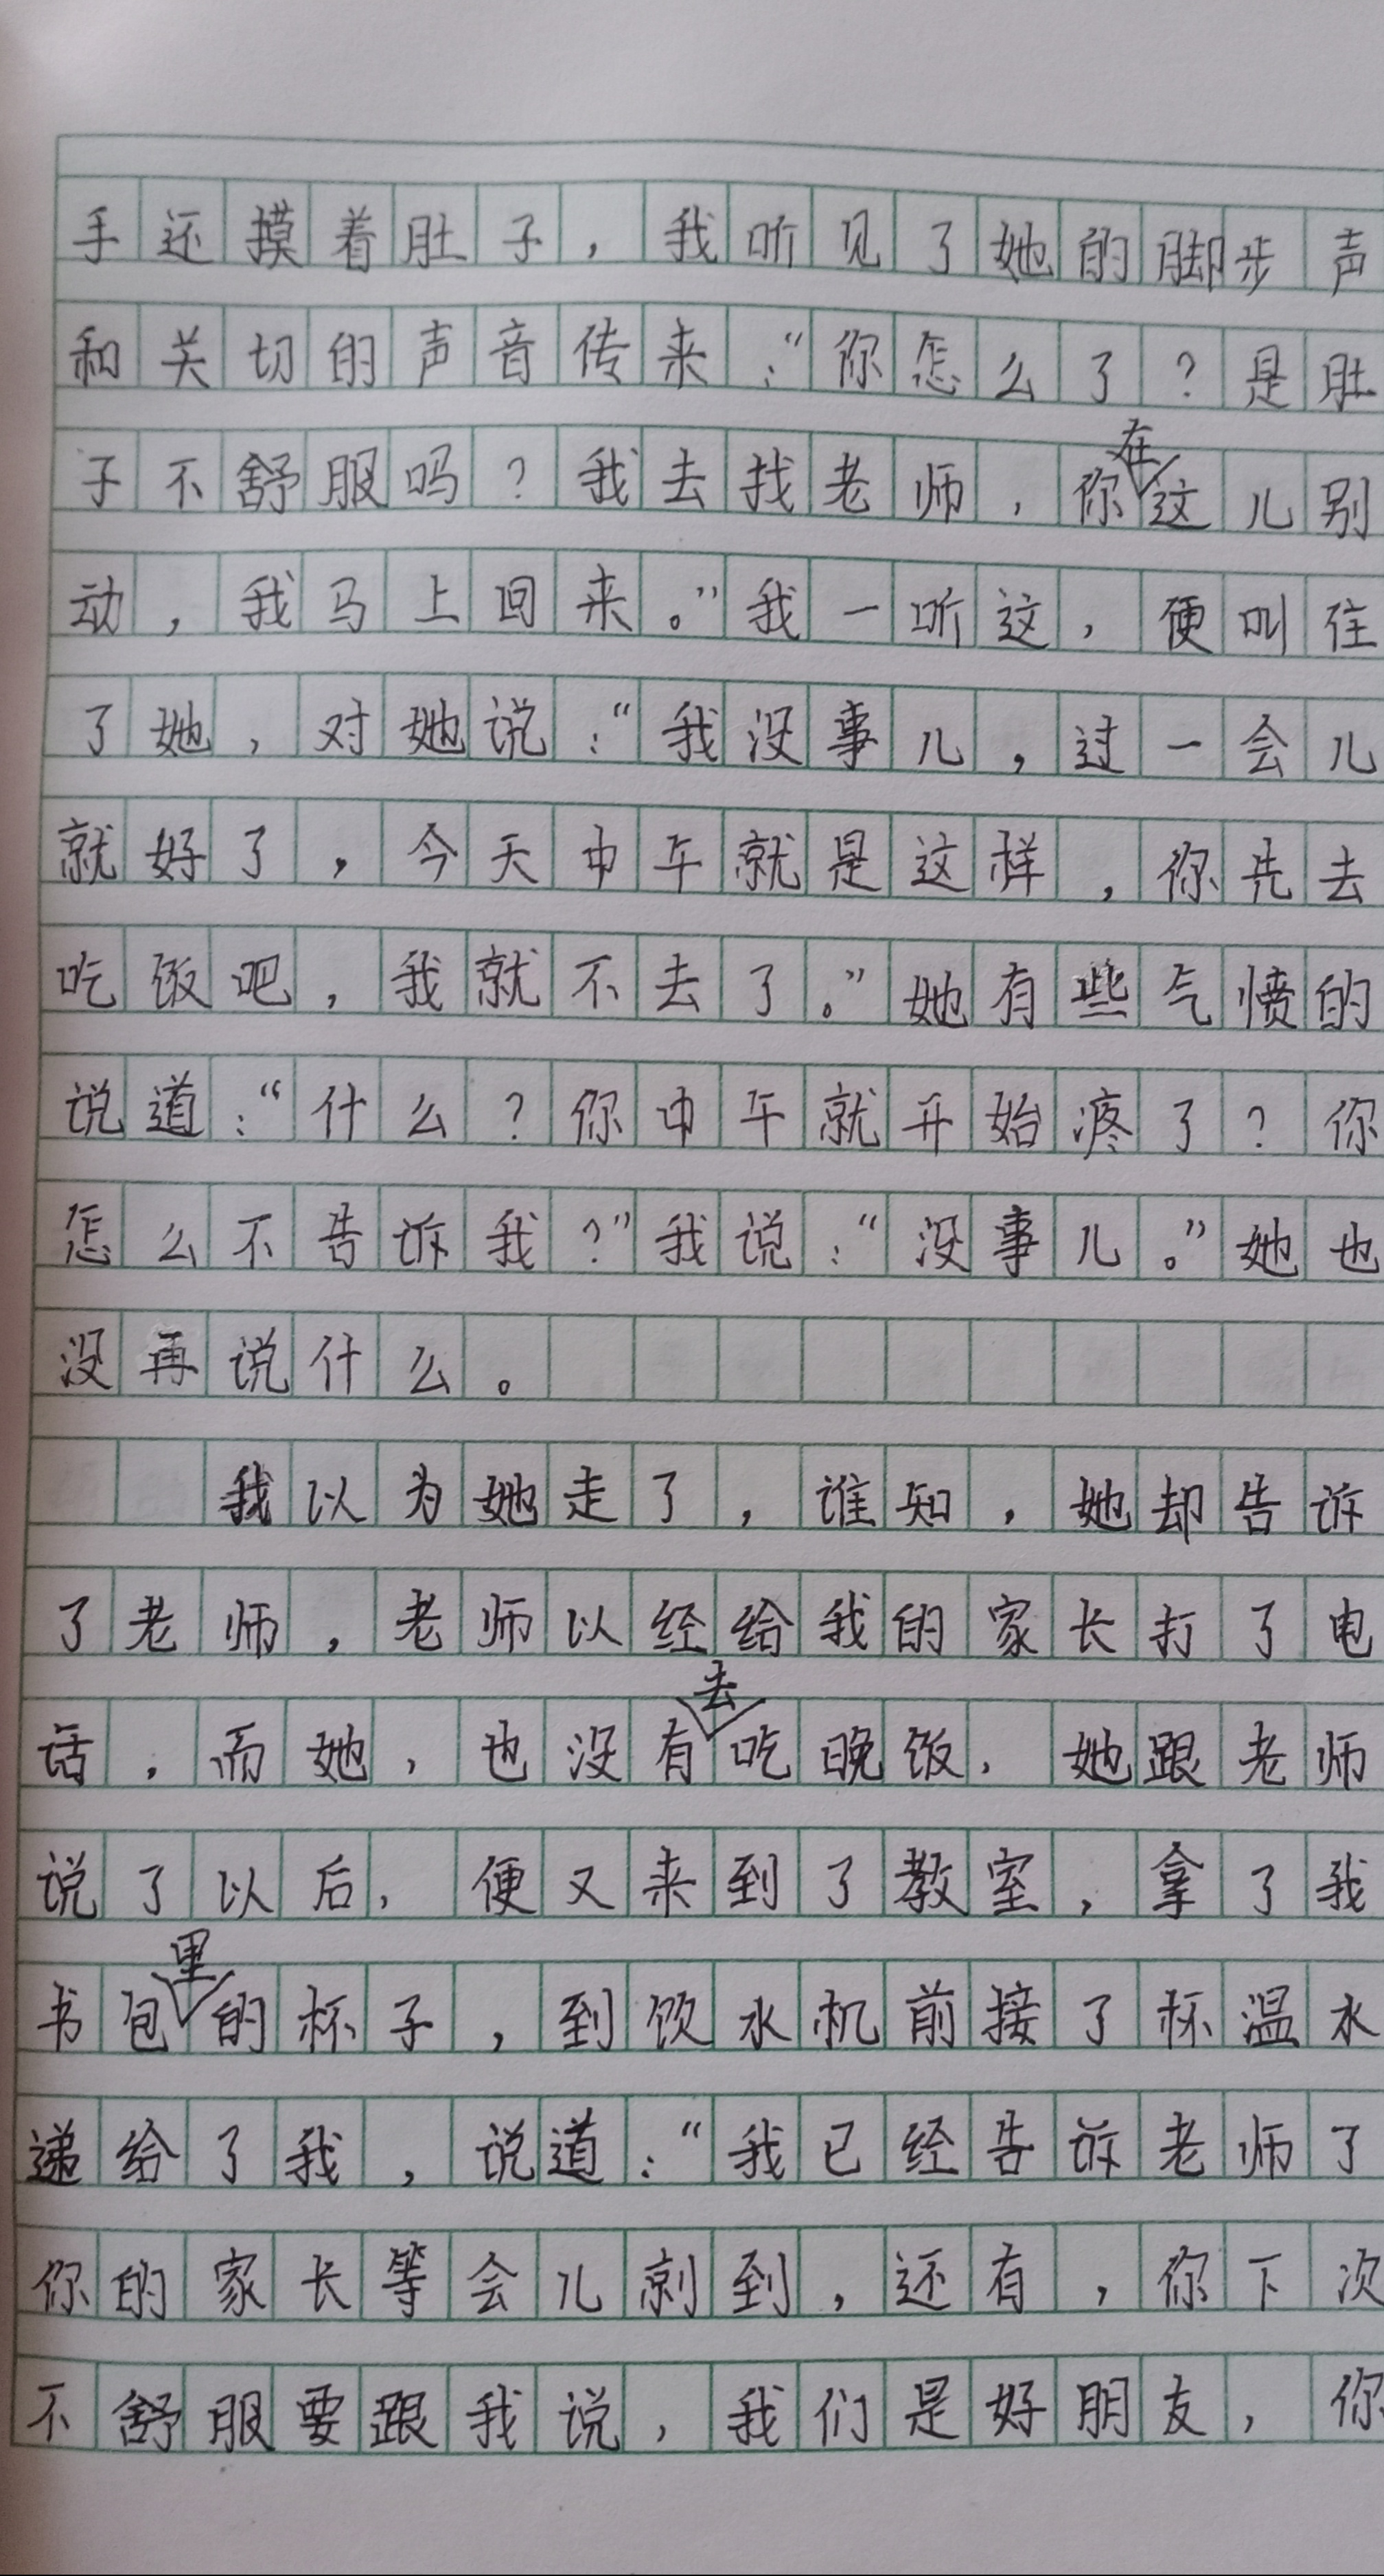 手还摸着肚子，我听见了她的脚步声
和关切的声音传来：“你怎么了？是肚
子不舒服吗？我去找老师，你在这儿别
动，我马上回来。”我一听这，便叫住
了她，对她说：“我没事儿，过一会儿
就好了，今天中午就是这样，你先去
吃饭吧，我就不去了。”她有些气愤的
说道：“什么？你中午就开始疼了？你
怎么不告诉我？”我说：“没事儿。”她也
没再说什么。
我以为她走了，谁知，她却告诉
了老师，老师以经给我的家长打了电
话，而她，也没有去吃晚饭，她跟老师
说了以后，便又来到了教室，拿了我
书包里的杯子，到饮水机前接了杯温水
递给了我，说道：“我已经告诉老师了
你的家长等会儿到，还有，你下次
不舒服要跟我说，我们是好朋友，你